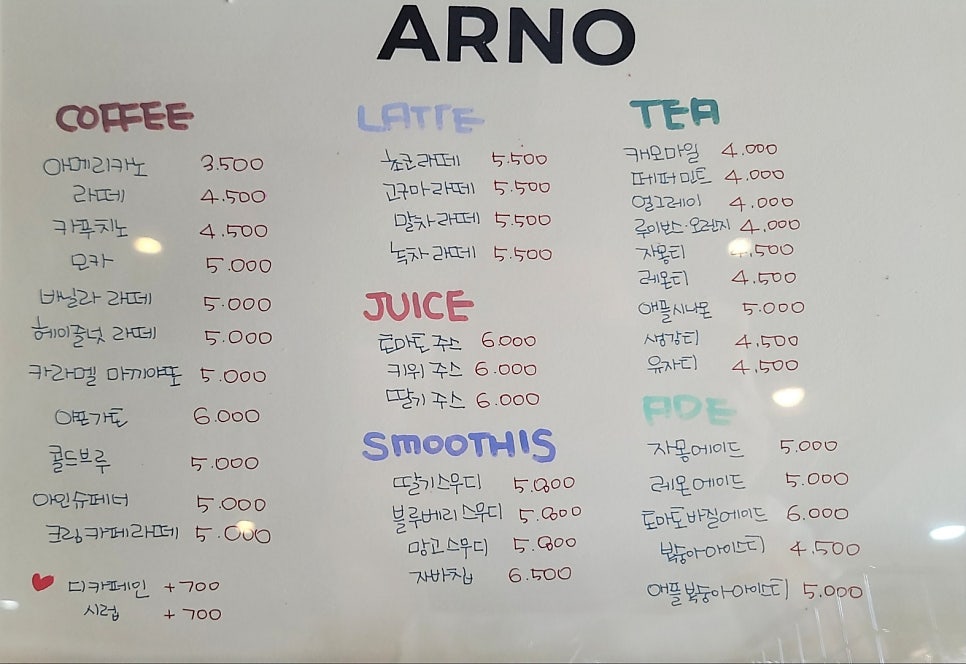 ARNO
COFFEE
아메리카노 3.500
라떼 4.500
카푸치노 4.500
모카 5.000
바닐라 라떼 5.000
헤이즐넛 라떼 5.000
카라멜 마끼아또 5.000
아포가토 6.000
콜드브루 5.000
아인슈페너 5.000
크림카페라떼 5.000
디카페인 +700
시럽 +700
LATTE
초코라떼 5.500
고구마라떼 5.500
말차라떼 5.500
녹차라떼 5.500
JUICE
토마토 주스 6.000
키위 주스 6.000
딸기 주스 6.000
SMOOTHIS
딸기스무디 5.800
블루베리스무디 5.800
망고스무디 5.800
자바칩 6.500
TEA
캐모마일 4.000
페퍼민트 4.000
얼그레이 4.000
루이보스·오렌지 4.000
자몽티 .500
레몬티 4.500
애플시나몬 5.000
생강티 4.500
유자티 4.500
ADE
자몽에이드 5.000
레몬에이드 5.000
토마토바질에이드 6.000
복숭아아이스티 4.500
애플복숭아아이스티 5.000